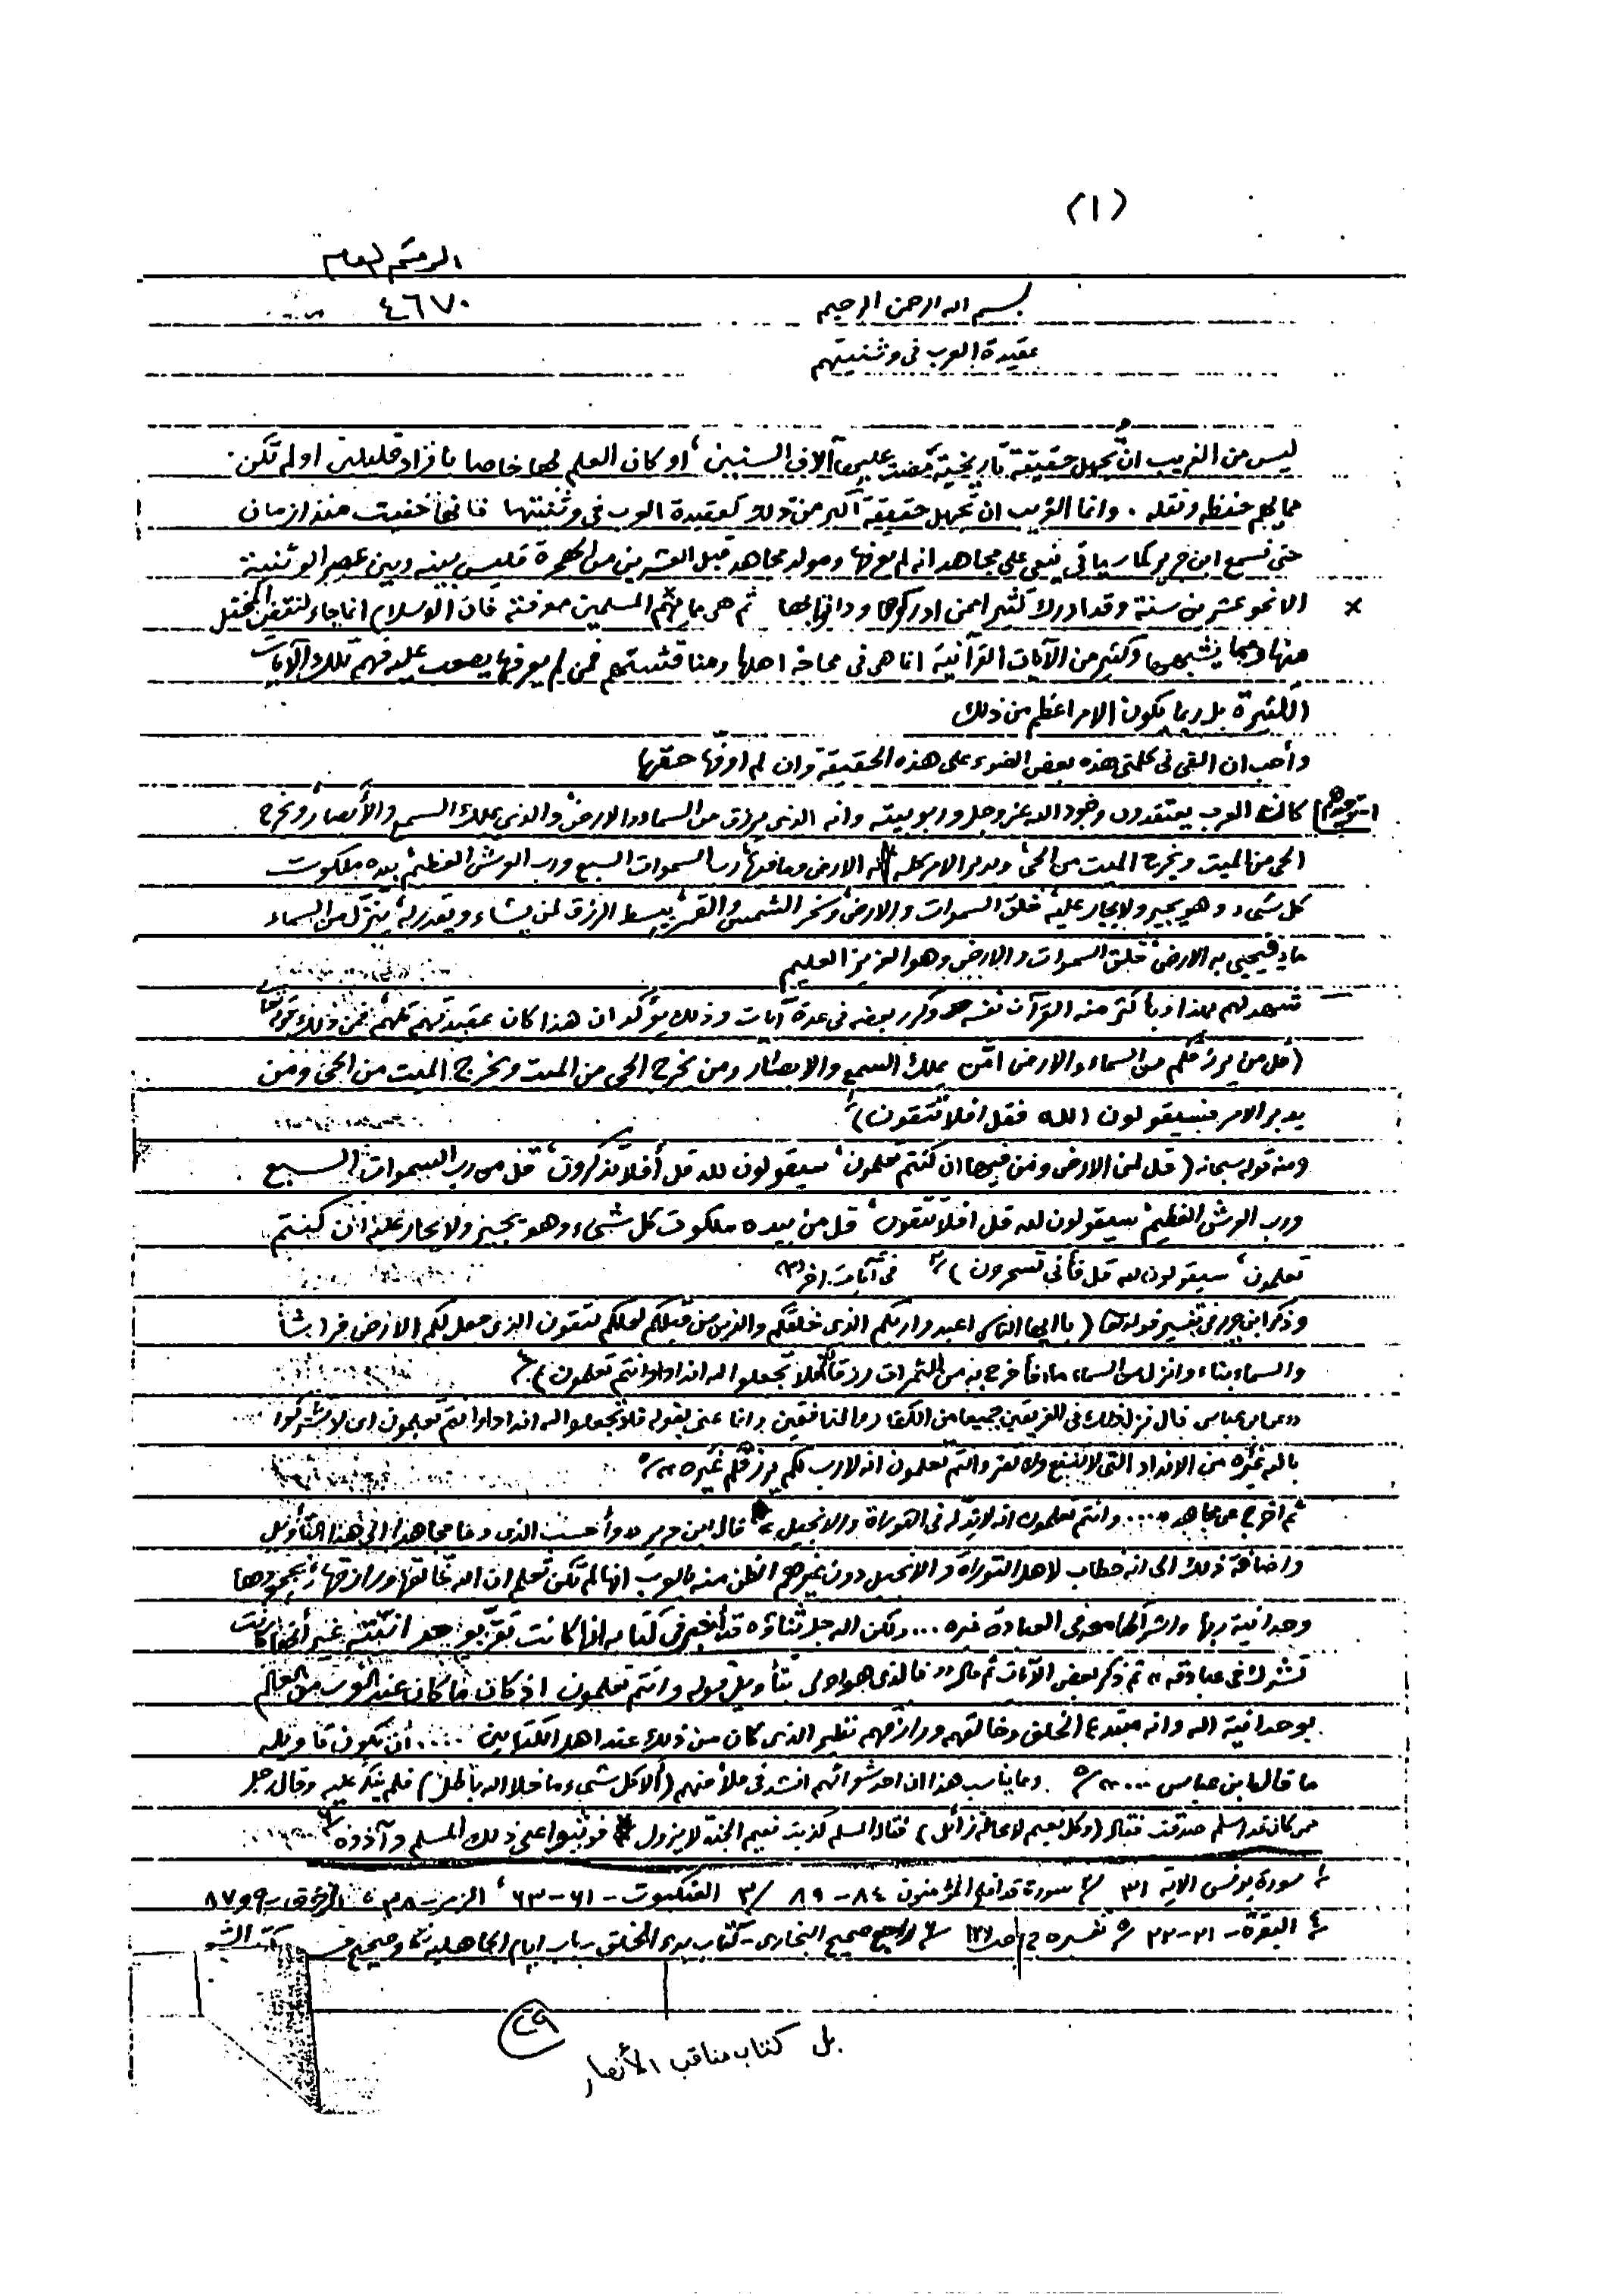 (١)
الرقم العام
٤٦٧٠
بسم الله الرحمن الرحيم
عقيدة العرب في وثنيتهم
ليس من الغريب ان تجهل حقيقة تاريخية مضت عليها آلاف السنين، أو كان العلم بها خاصا بافراد قليلين او لم تكن
مما يهم حفظه ونقله. وانما الغريب ان تجهل حقيقة اكبر من ذلك كعقيدة العرب في وثنيتها فانها خفيت منذ ازمان
حتى نسمع ابن جرير كما سيأتي ينعى على مجاهد انه لم يعرفها ومولد مجاهد قبل العشرين من الهجرة فليس بينه وبين عصر الوثنية
× الا نحو عشرين سنة وقد ادرك كثيرا ممن ادركوها ودانوا بها ثم هي مما يهم المسلمين معرفته فان الاسلام انما جاء لنقض المختل
منها وبما يشبهها وكثير من الآيات القرآنية انما هي في محاجة اهلها ومناقشتهم فمن لم يعرفها يصعب عليه فهم تلك الآيات
الكثيرة بل ربما يكون الامر اعظم من ذلك
وأحب ان القي في كلمتي هذه بعض الضوء على هذه الحقيقة وان لم اوفها حقها
كانت العرب يعتقدون وجود الله عز وجل وربوبيته وانه الذي يرزق من السماء والارض، والذي يملك السمع والأبصار، ويخرج
الحي من الميت ويخرج الميت من الحي، ويدبر الامر كله له الارض وما فيها، رب السموات السبع ورب العرش العظيم، بيده ملكوت
كل شيء وهو يجير ولا يجار عليه، خلق السموات والارض، وسخر الشمس والقمر، يبسط الرزق لمن يشاء ويقدر له، ينزل من السماء
ماء فيحيي به الارض، خلق السموات والارض وهو العزيز العليم
— شهد لهم بهذا وبأكثر منه القرآن نفسه وكرر بعضه في عدة آيات وذلك يؤكد ان هذا كان عقيدتهم كلهم، فمن ذلك قوله تعالى
(قل من يرزقكم من السماء والارض امن يملك السمع والابصار ومن يخرج الحي من الميت ويخرج الميت من الحي ومن
يدبر الامر فسيقولون الله فقل افلا تتقون) ١/
ومنه قوله سبحانه (قل لمن الارض ومن فيها ان كنتم تعلمون، سيقولون لله قل أفلا تذكرون، قل من رب السموات السبع
ورب العرش العظيم، سيقولون لله قل افلا تتقون، قل من بيده ملكوت كل شيء وهو يجير ولا يجار عليه ان كنتم
تعلمون، سيقولون لله قل فأنى تسحرون) ٢/ في آيات اخر (٣)
وذكر ابن جرير في تفسير قوله تعالى (يا ايها الناس اعبدوا ربكم الذي خلقكم والذين من قبلكم لعلكم تتقون الذي جعل لكم الارض فراشا
والسماء بناء وانزل من السماء ماء فأخرج به من الثمرات رزقا لكم فلا تجعلوا لله اندادا وانتم تعلمون) ٤/
«عن ابن عباس قال نزل ذلك في الفريقين جميعا من الكفار والمنافقين وانما عنى بقوله فلا تجعلوا لله اندادا وانتم تعلمون اي لا تشركوا
بالله غيره من الانداد التي لا تنفع ولا تضر وانتم تعلمون انه لا رب لكم يرزقكم غيره » ٥/
ثم اخرج عن مجاهد «.... وانتم تعلمون انه لا ند له في التوراة والانجيل» قال ابن جرير «وأحسب الذي دعا مجاهدا الى هذا التأويل
واضافة ذلك الى انه خطاب لاهل التوراة والانجيل دون غيرهم الظن منه بالعرب انها لم تكن تعلم ان الله خالقها ورازقها، بجحودها
وحدانية ربها واشراكها معه في العبادة غيره ... ولكن الله جل ثناؤه قد أخبر في كتابه انها كانت تقر بوحدانيته غير أنها كانت
تشرك في عبادته» ثم ذكر بعض الآيات ثم قال «فالذي هو اولى بتأويل قوله وانتم تعلمون اذ كان ما كان عند العرب من العلم
بوحدانية الله وانه مبتدع الخلق وخالقهم ورازقهم نظير الذي كان من ذلك عند اهل الكتابين .... أن يكون تأويله
ما قاله ابن عباس ....» ٥/ ومما يناسب هذا ان احد شعرائهم انشد في ملأ منهم (ألا كل شيء ما خلا الله باطل) فلم ينكر عليه وقال رجل
ممن كان قد اسلم صدقت فقال (وكل نعيم لا محالة زائل) فقال المسلم كذبت نعيم الجنة لا يزول فوثبوا على ذلك المسلم وآذوه ٦/
١/ سورة يونس الآية ٣١ ٢/ سورة قد افلح المؤمنون ٨٤-٨٩ ٣/ العنكبوت - ٦١-٦٣، الزمر - ٣٨، الزخرف - ٩ و ٨٧
٤/ البقرة - ٢١-٢٢ ٥/ تفسيره ج ١ ص ١٢٦ ٦/ راجع صحيح البخاري - كتاب بدء الخلق - باب ايام الجاهلية
بل كتاب مناقب الأنصار
٢٩